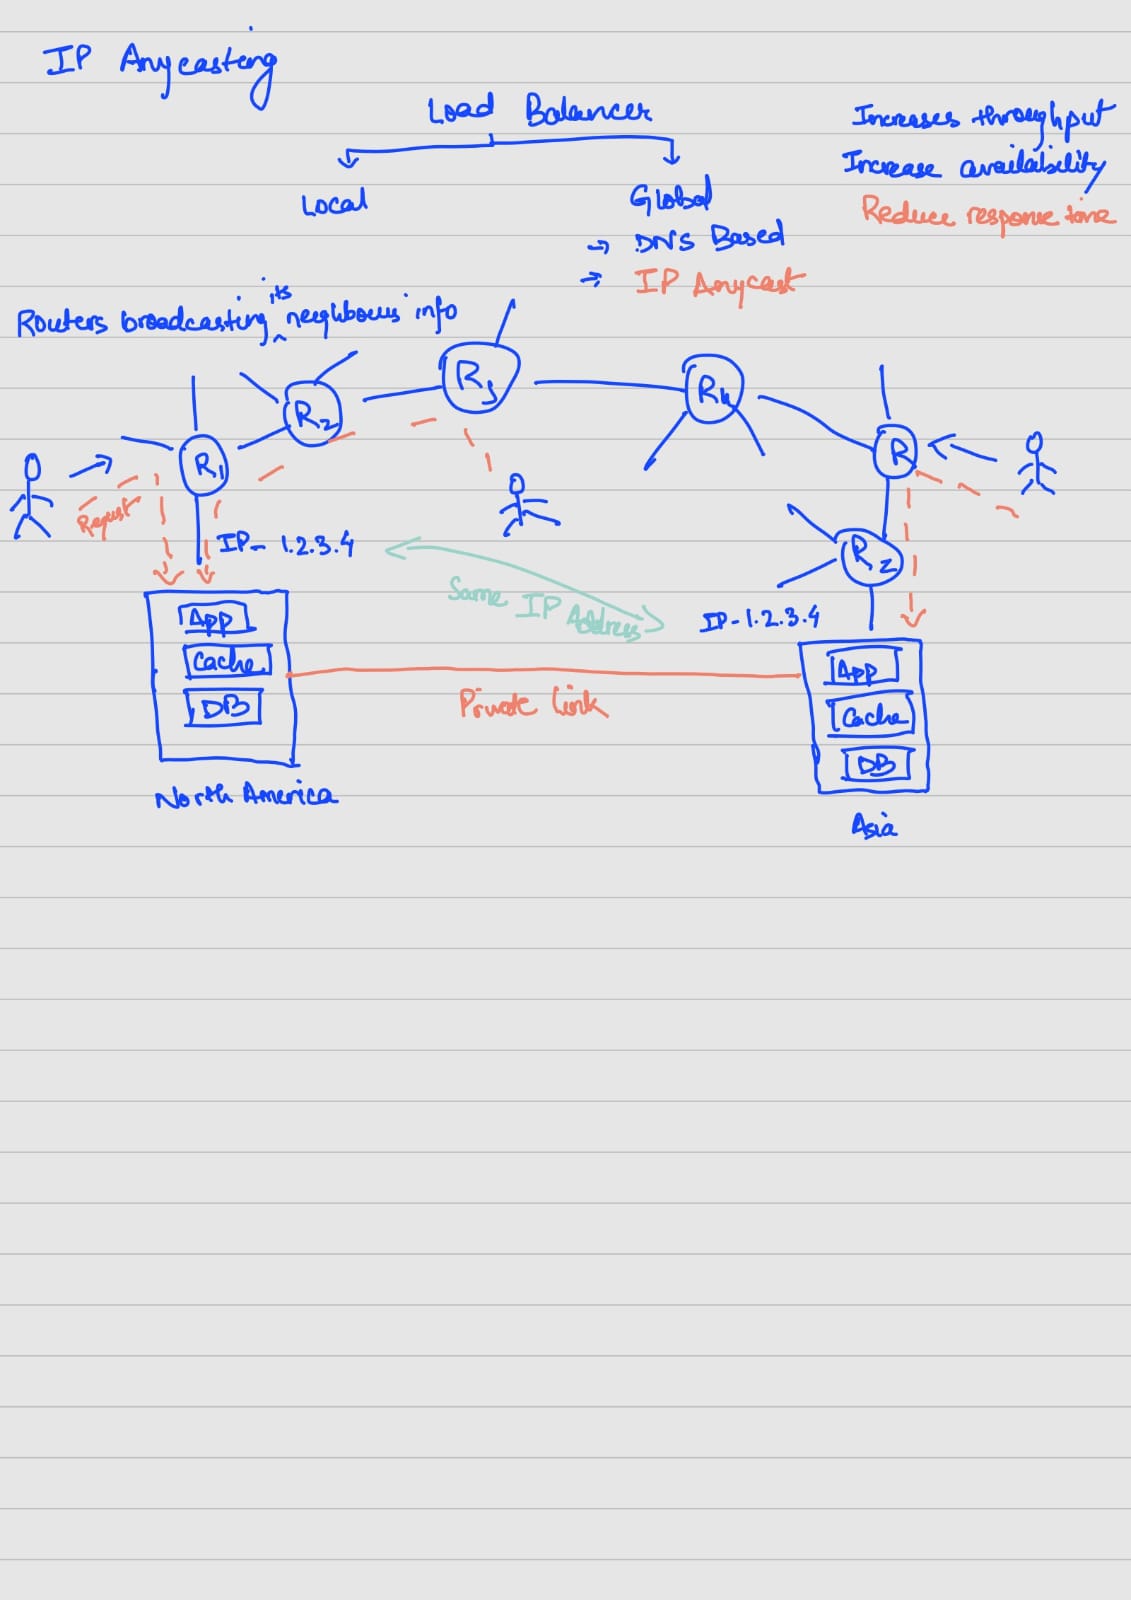 IP Anycasting
Load Balancer
Local
Global
→ DNS Based
→ IP Anycast
Increases throughput
Increase availability
Reduce response time
its
Routers broadcasting ^ neighbours info
R1
R2
R3
R4
R
RZ
Request
IP- 1.2.3.4
Same IP Address
IP-1.2.3.4
App
Cache
DB
North America
Private Link
App
Cache
DB
Asia